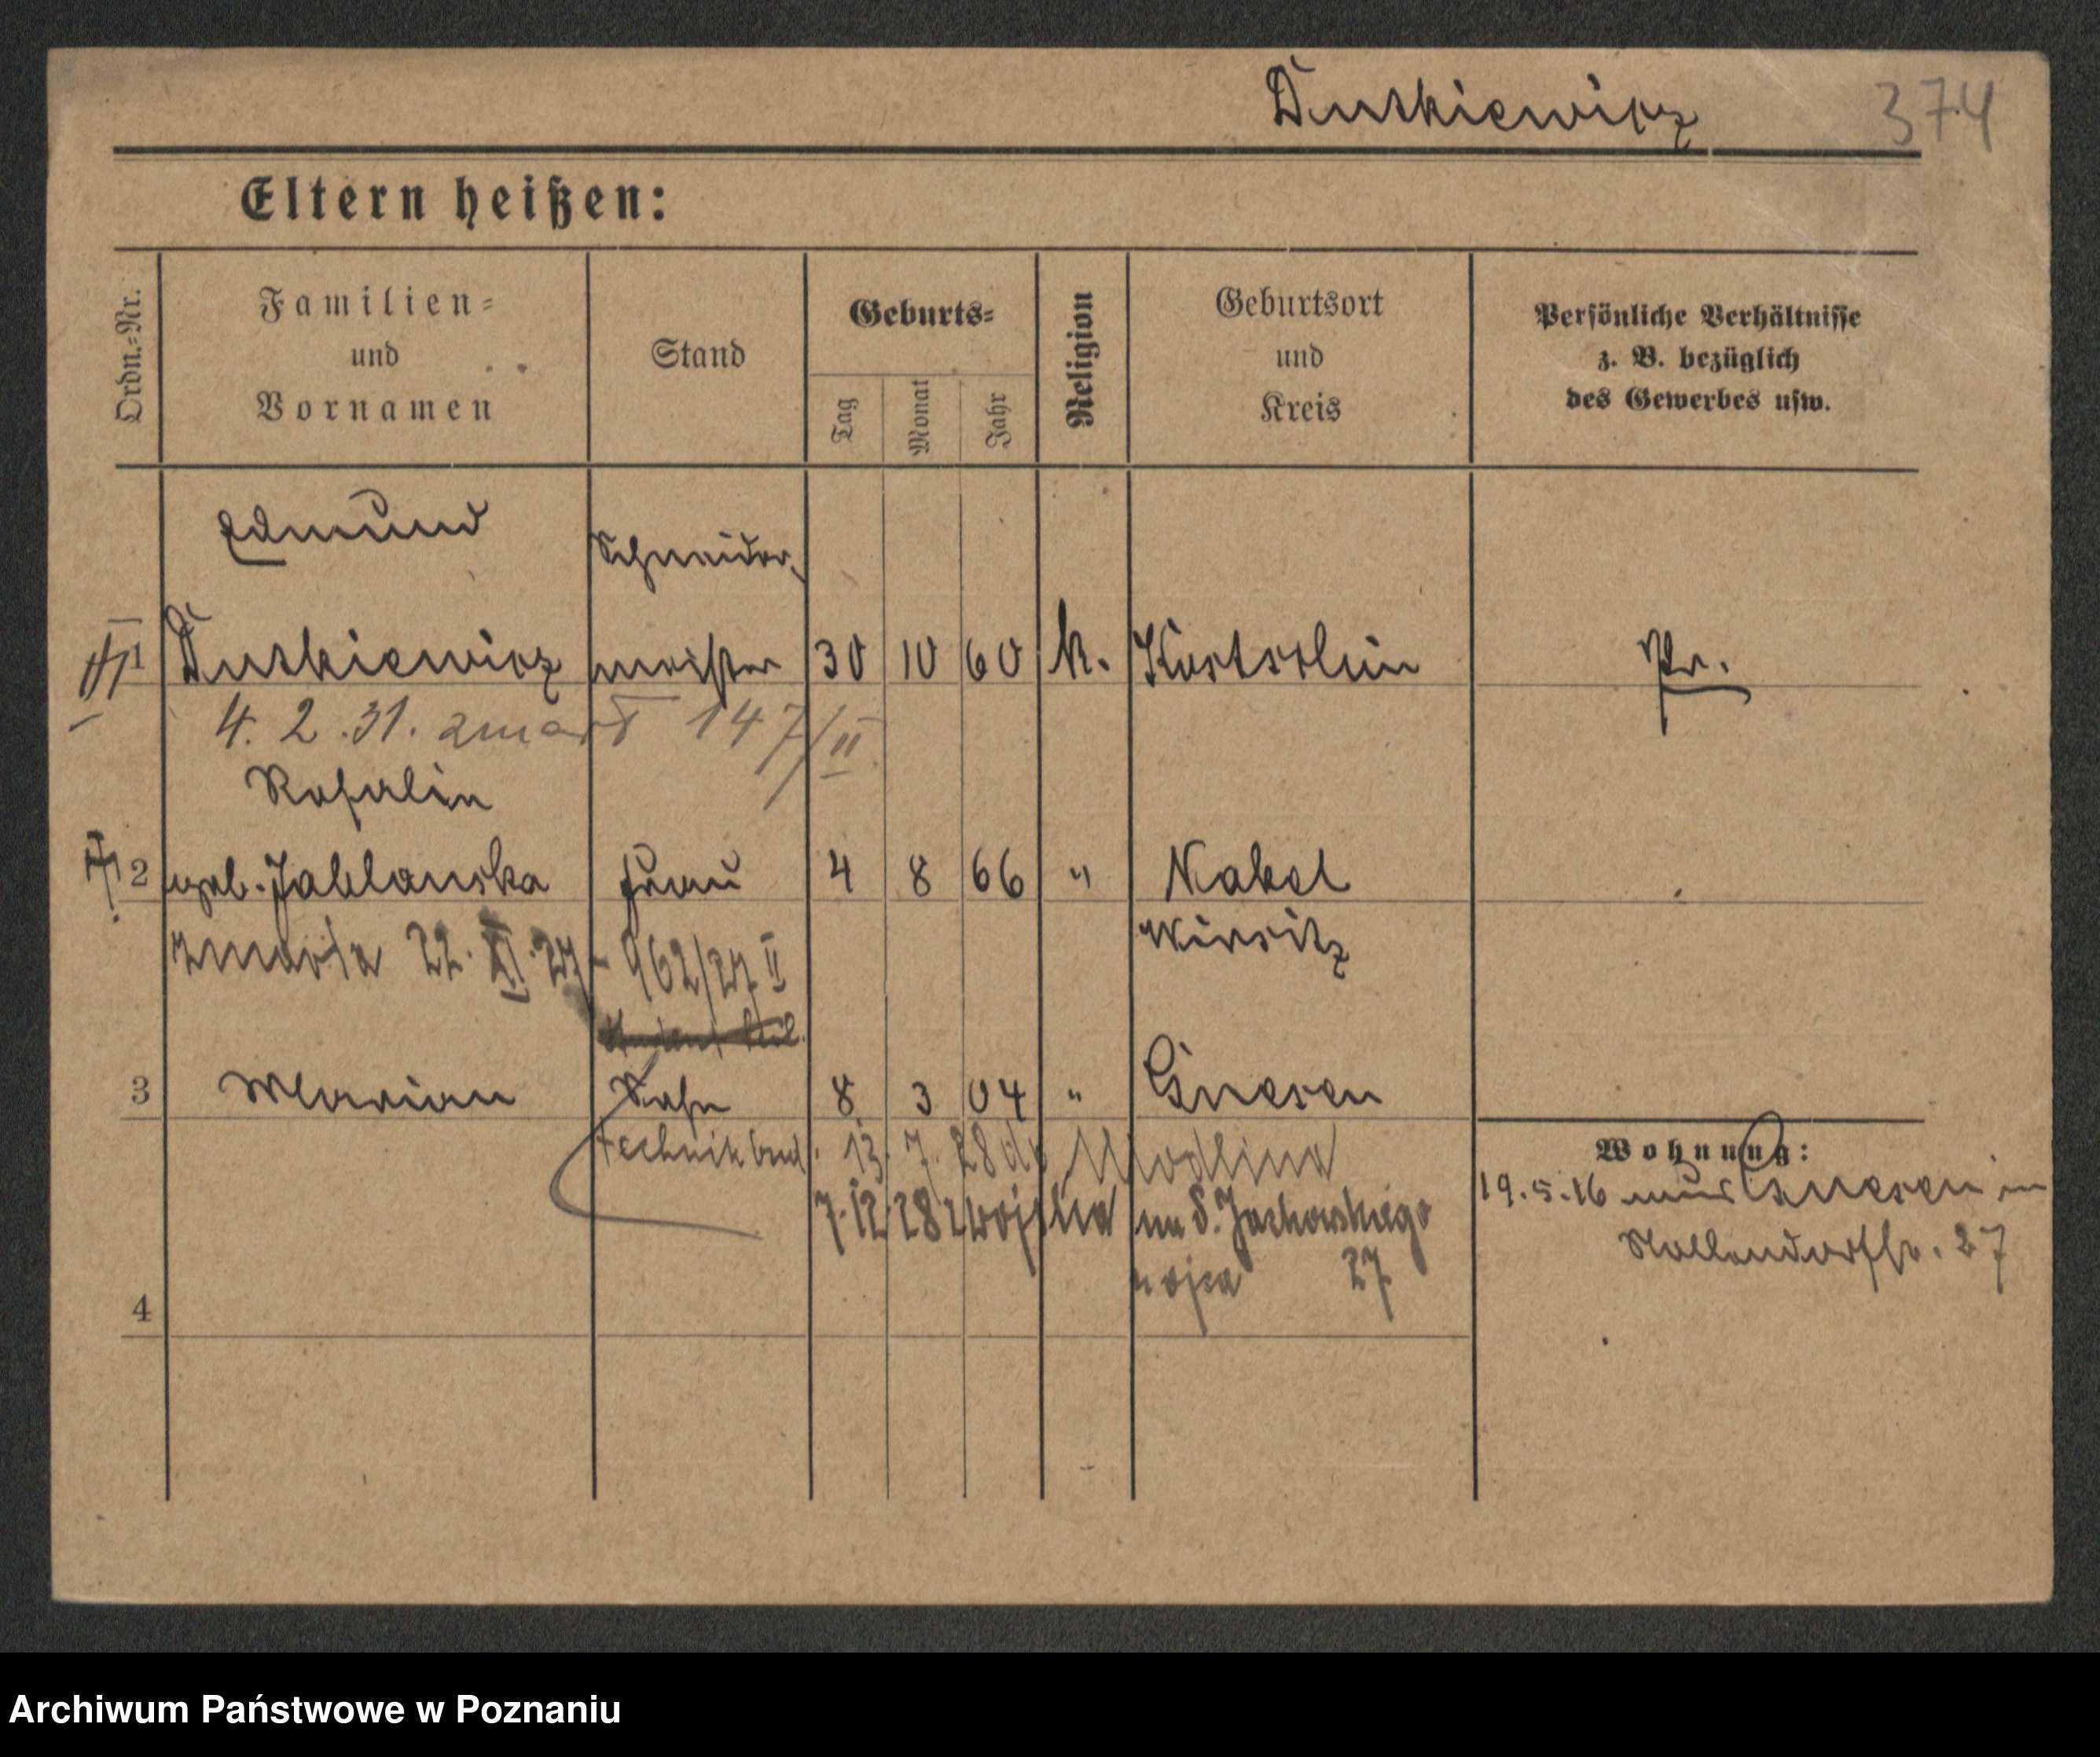 Dutkiewicz 374
Eltern heißen:
Ordn.-Nr.
Familien-
und
Vornamen
Stand
Geburts-
Tag
Monat
Jahr
Religion
Geburtsort
und
Kreis
Persönliche Verhältnisse
z. B. bezüglich
des Gewerbes usw.
Edmund Schneider
1 Dutkiewicz meister 30 10 60 k. Kostschin Pr.
4. 2. 31. zmarł 147/II
Rosalie
2 geb. Jablonska Frau 4 8 66 " Nakel
zmarła 22. XI. 27 - 962/27 II Wirsitz
3 Marian Sohn 8 3 04 " Gnesen
Wohnung:
technik bud. 13. 7. 28 do Modlina
19. 5. 16 aus Gnesen in
7. 12. 28 z wojska na S. Jackowskiego
Nollendorfstr. 27
27
4
Archiwum Państwowe w Poznaniu